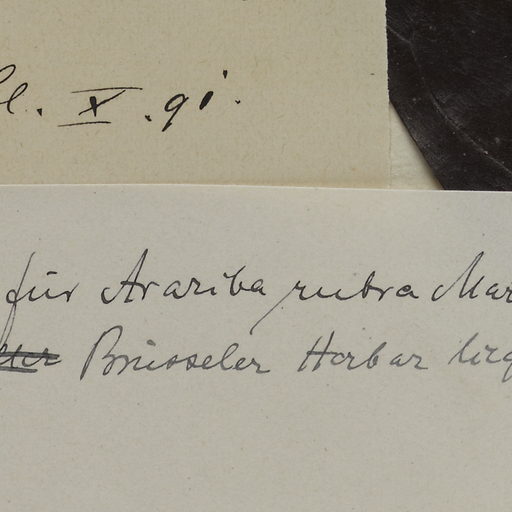 X. 91.
für Arariba rubra Mar
Brüsseler Herbar lieg